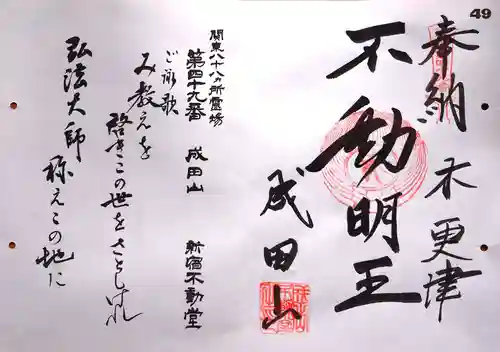 49
奉納 木更津
不動明王
成田山
関東八十八ヵ所霊場
第四十九番 成田山 新宿不動堂
ご詠歌
み教えを
啓きこの世をさとし
弘法大師
称えこの地に